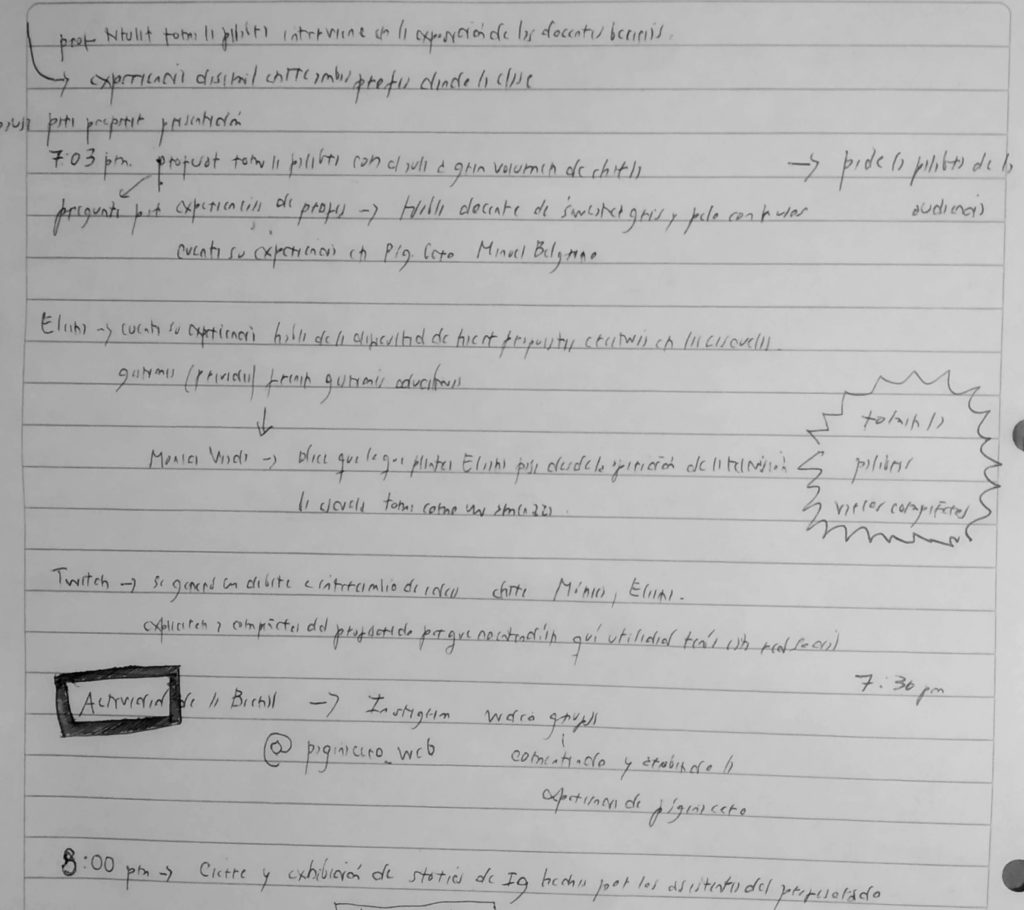 prof Ntulit toma la palabra interviene en la exposición de los docentes becarios.
→ experiencia disimil entre ambas profes dinde la clase
para preparar presentación
7:03 pm. profesor toma la palabra con el aula a gran volumen de charla → pide la palabra de la
audiencia
pregunta por experiencias de profes → Habla docente de sweater gris, y pelo con
cuenta su experiencia en Pág. Cero Manuel Belgrano
Eliana → cuenta su experiencia habla de la dificultad de hacer propuestas creativas en las escuelas.
guaranis (privadas) frenan guaranis educativas
↓
Monica Viada → Dice que lo que plantea Eliana pasa desde la aparición de la televisión
la escuela toma como un amenaza.
toman la
palabra
varias compañeras
Twitch → se generó un debate e intercambio de ideas entre Mónica, Eliana.
explicitan a compañeras del profesorado porque no entendían qué utilidad tenía esta red social
7:30 pm
Actividad de la Bicha → Instagram video grupal
@paginacero_web comentando y grabando la
experiencia de página cero
8:00 pm → Cierre y exhibición de stories de Ig hechas por los asistentes del profesorado